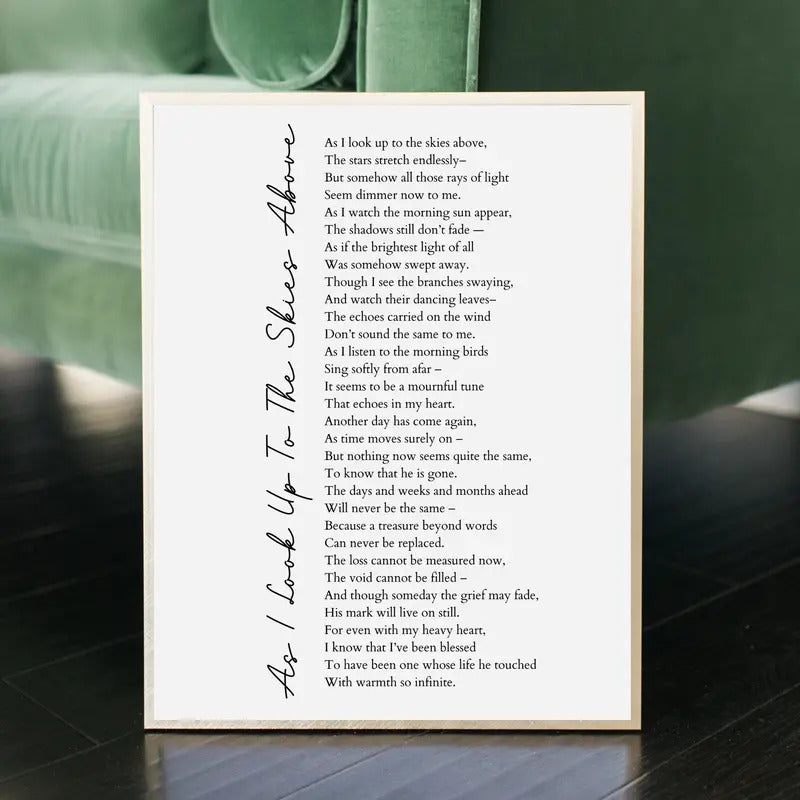 As I Look Up To The Skies Above
As I look up to the skies above,
The stars stretch endlessly–
But somehow all those rays of light
Seem dimmer now to me.
As I watch the morning sun appear,
The shadows still don't fade —
As if the brightest light of all
Was somehow swept away.
Though I see the branches swaying,
And watch their dancing leaves–
The echoes carried on the wind
Don't sound the same to me.
As I listen to the morning birds
Sing softly from afar –
It seems to be a mournful tune
That echoes in my heart.
Another day has come again,
As time moves surely on –
But nothing now seems quite the same,
To know that he is gone.
The days and weeks and months ahead
Will never be the same –
Because a treasure beyond words
Can never be replaced.
The loss cannot be measured now,
The void cannot be filled –
And though someday the grief may fade,
His mark will live on still.
For even with my heavy heart,
I know that I've been blessed
To have been one whose life he touched
With warmth so infinite.